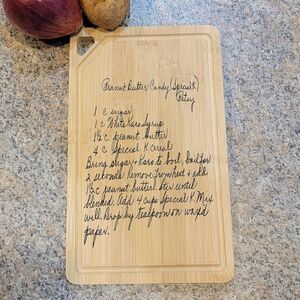 Peanut Butter Candy (Special K)
Patsy
1 c sugar
1 c White Karo Syrup
1½ c peanut butter
4 c Special K cereal
Bring sugar + Karo to boil, boil for
2 seconds. Remove from heat + add
1½ c peanut butter. Stir until
blended. Add 4 cups Special K. Mix
well. Drop by teaspoon on waxed
paper.